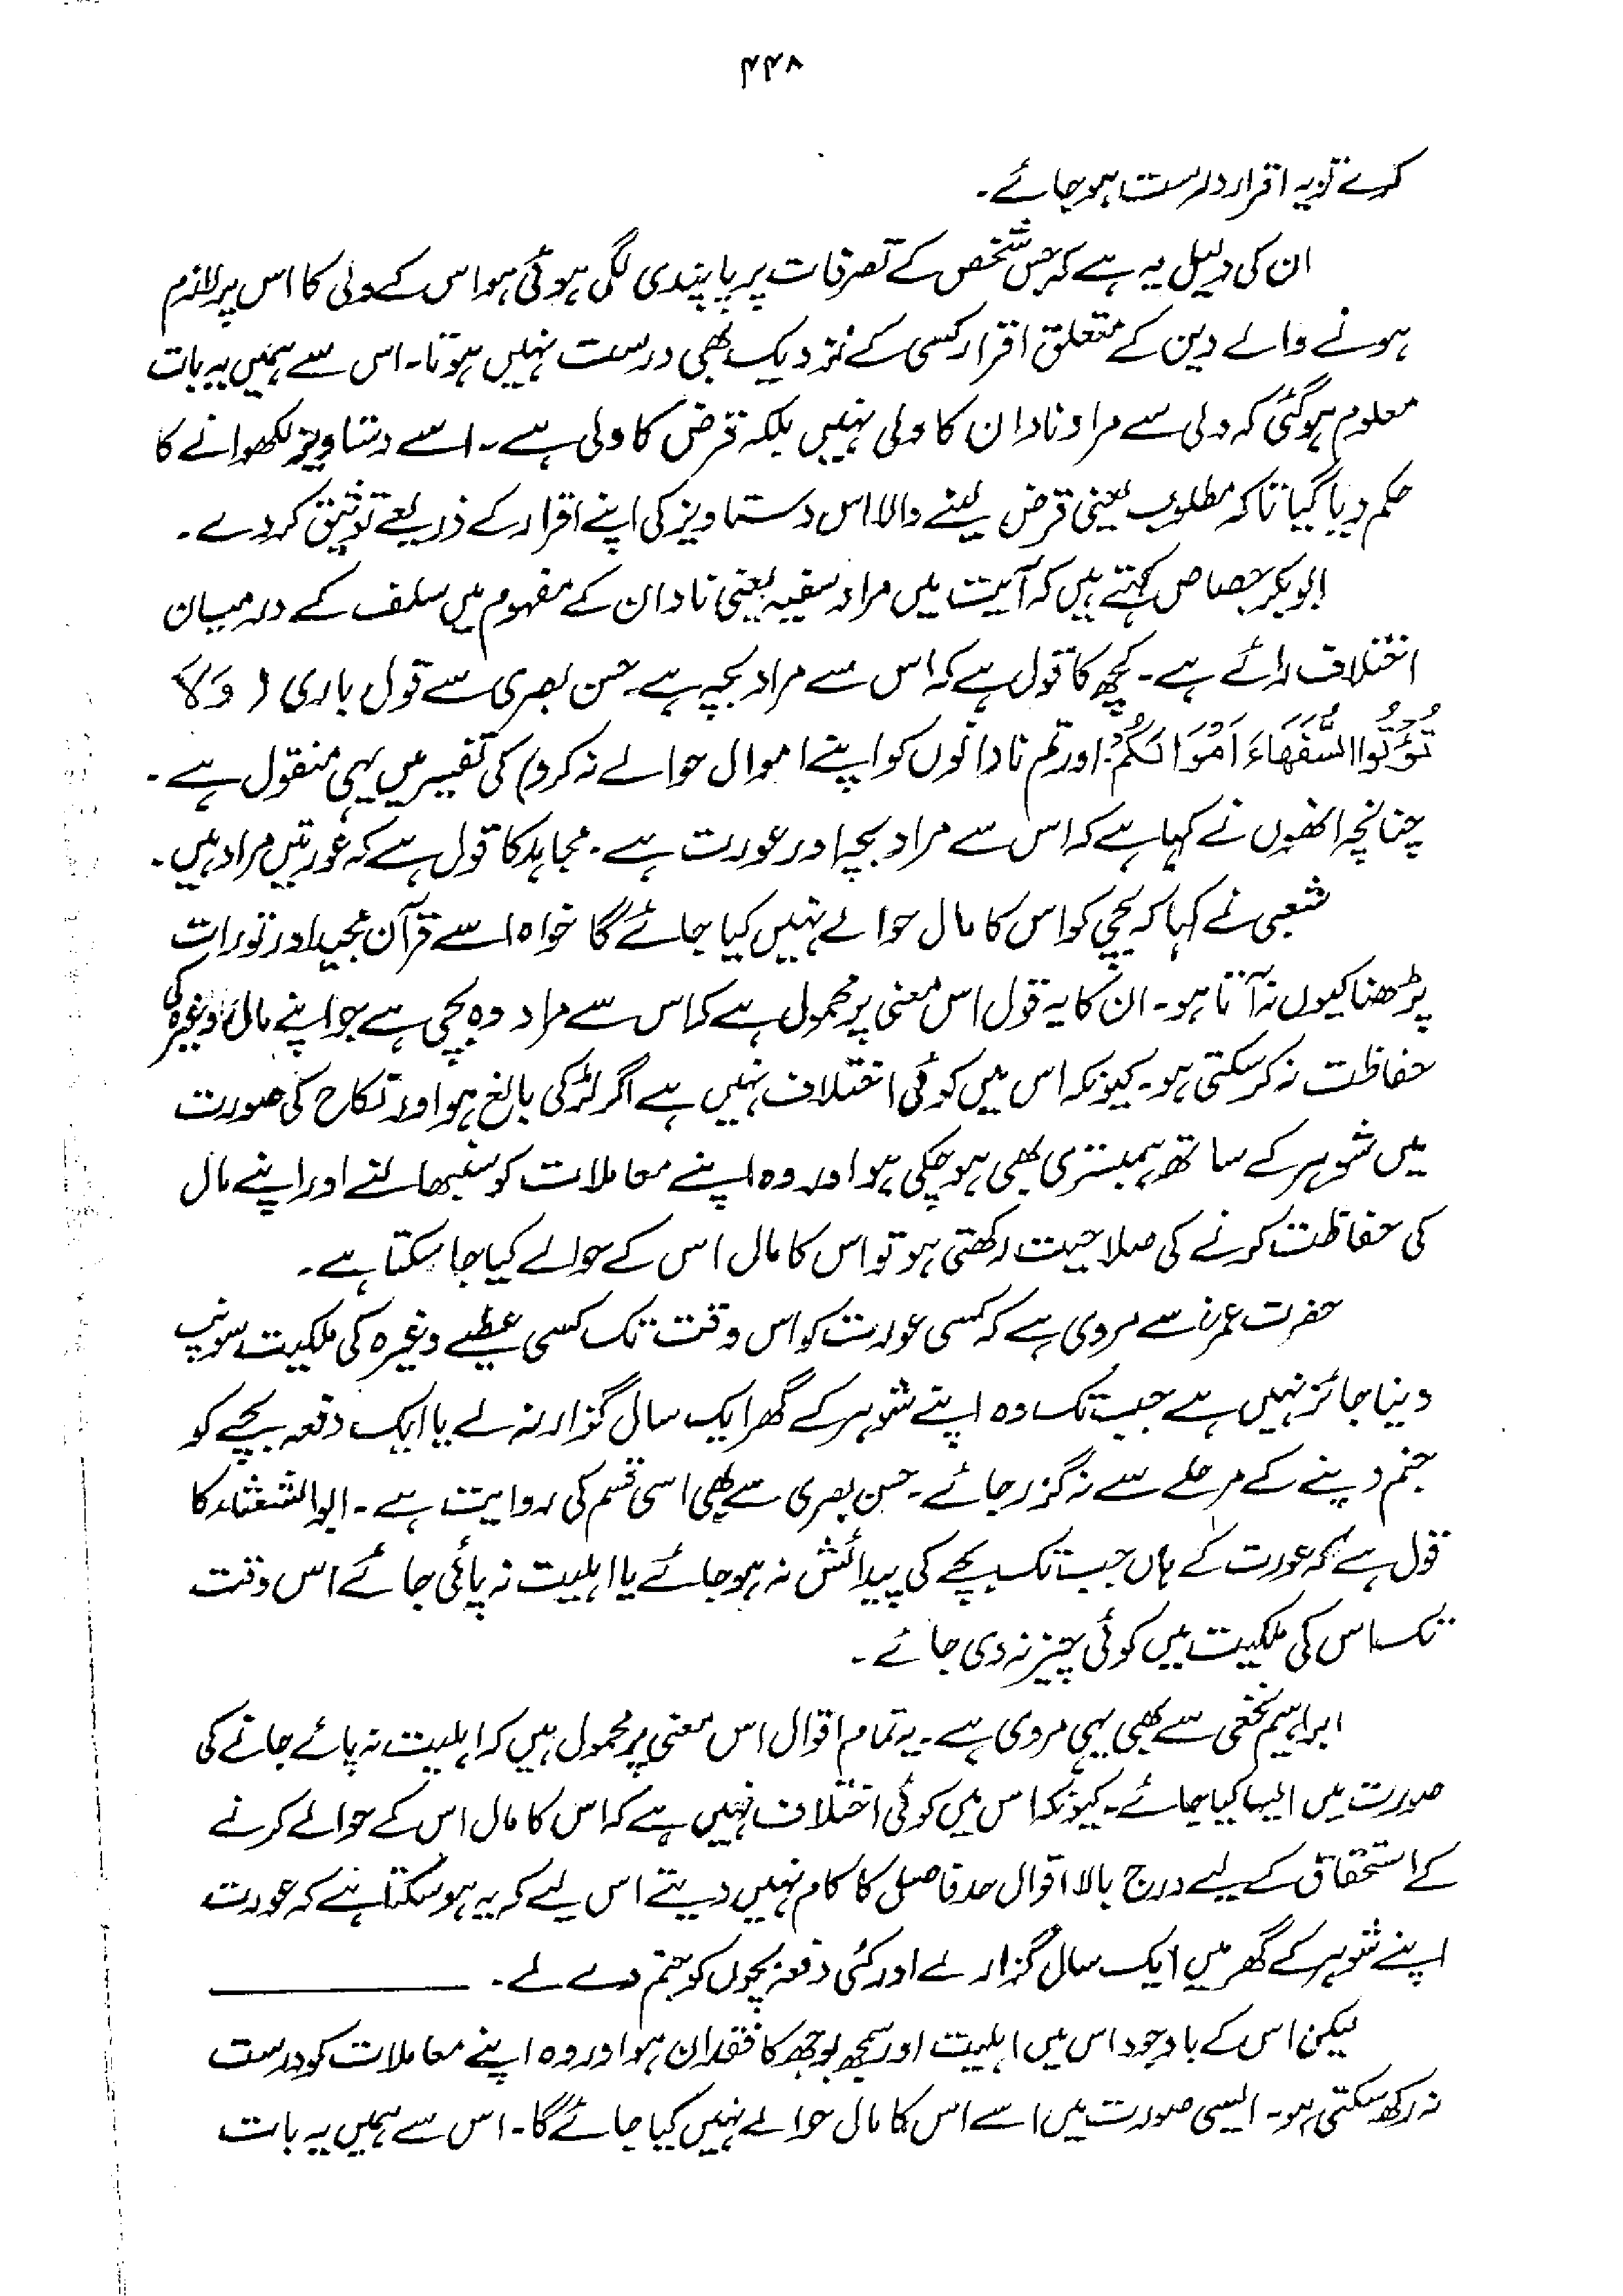 ۴۴۸
کرے تو یہ اقرار درست ہو جائے۔
ان کی دلیل یہ ہے کہ جس شخص کے تصرفات پر پابندی لگی ہوئی ہو اس کے ولی کا اس پر لازم
ہونے والے دین کے متعلق اقرار کسی کے نزدیک بھی درست نہیں ہوتا۔ اس سے ہمیں یہ بات
معلوم ہوگئی کہ ولی سے مراد نادان کا ولی نہیں بلکہ قرض کا ولی ہے۔ اسے دستاویز لکھوانے کا
حکم دیا گیا تاکہ مطلوب یعنی قرض لینے والا اس دستاویز کی اپنے اقرار کے ذریعے توثیق کردے۔
ابوبکر جصاص کہتے ہیں کہ آیت میں مراد سفیہ یعنی نادان کے مفہوم میں سلف کے درمیان
اختلاف رائے ہے۔ کچھ کا قول ہے کہ اس سے مراد بچہ ہے۔ حسن بصری سے قول باری (وَلَا
تُؤْتُوا السُّفَهَاءَ اَمْوَالَكُمُ: اور تم نادانوں کو اپنے اموال حوالے نہ کرو) کی تفسیر میں یہی منقول ہے۔
چنانچہ انھوں نے کہا ہے کہ اس سے مراد بچہ اور عورت ہے۔ مجاہد کا قول ہے کہ عورتیں مراد ہیں۔
شعبی نے کہا کہ بچی کو اس کا مال حوالے نہیں کیا جائے گا خواہ اسے قرآن مجید اور تورات
پڑھنا کیوں نہ آتا ہو۔ ان کا یہ قول اس معنی پر محمول ہے کہ اس سے مراد وہ بچی ہے جو اپنے مال وغیرہ کی
حفاظت نہ کرسکتی ہو۔ کیونکہ اس میں کوئی اختلاف نہیں ہے اگر لڑکی بالغ ہو اور نکاح کی صورت
میں شوہر کے ساتھ ہمبستری بھی ہوچکی ہو اور وہ اپنے معاملات کو سنبھالنے اور اپنے مال
کی حفاظت کرنے کی صلاحیت رکھتی ہو تو اس کا مال اس کے حوالے کیا جاسکتا ہے۔
حضرت عمرؓ سے مروی ہے کہ کسی عورت کو اس وقت تک کسی عطیے وغیرہ کی ملکیت سونپ
دینا جائز نہیں ہے جب تک وہ اپنے شوہر کے گھر ایک سال گزار نہ لے یا ایک دفعہ بچے کو
جنم دینے کے مرحلے سے نہ گزر جائے۔ حسن بصری سے بھی اسی قسم کی روایت ہے۔ ابوالشعثاء کا
قول ہے کہ عورت کے ہاں جب تک بچے کی پیدائش نہ ہوجائے یا اہلیت نہ پائی جائے اس وقت
تک اس کی ملکیت میں کوئی چیز نہ دی جائے۔
ابراہیم نخعی سے بھی یہی مروی ہے۔ یہ تمام اقوال اس معنی پر محمول ہیں کہ اہلیت نہ پائے جانے کی
صورت میں ایسا کیا جائے۔ کیونکہ اس میں کوئی اختلاف نہیں ہے کہ اس کا مال اس کے حوالے کرنے
کے استحقاق کے لیے درج بالا اقوال حد فاصل کا کام نہیں دیتے اس لیے کہ یہ ہوسکتا ہے کہ عورت
اپنے شوہر کے گھر میں ایک سال گزار لے اور کئی دفعہ بچوں کو جنم دے لے۔
لیکن اس کے باوجود اس میں اہلیت اور سمجھ بوجھ کا فقدان ہو اور وہ اپنے معاملات کو درست
نہ رکھ سکتی ہو۔ ایسی صورت میں اسے اس کا مال حوالے نہیں کیا جائے گا۔ اس سے ہمیں یہ بات